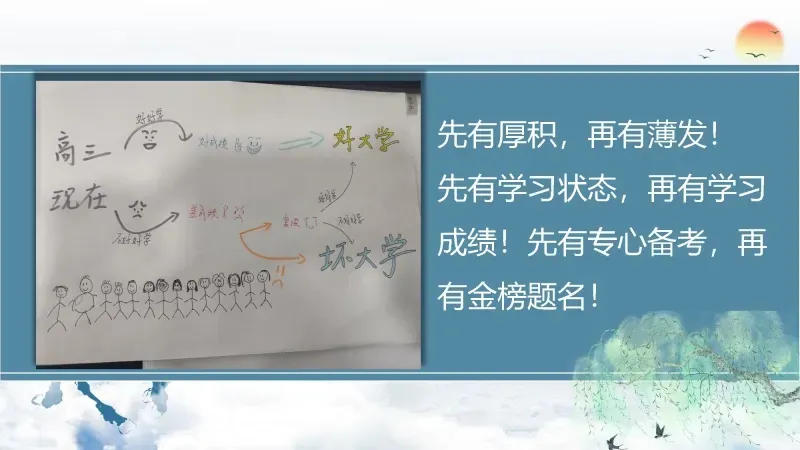 好好学
高三
好成绩
好大学
现在
差成绩
复读
不好好学
坏大学
先有厚积，再有薄发！
先有学习状态，再有学习
成绩！先有专心备考，再
有金榜题名！